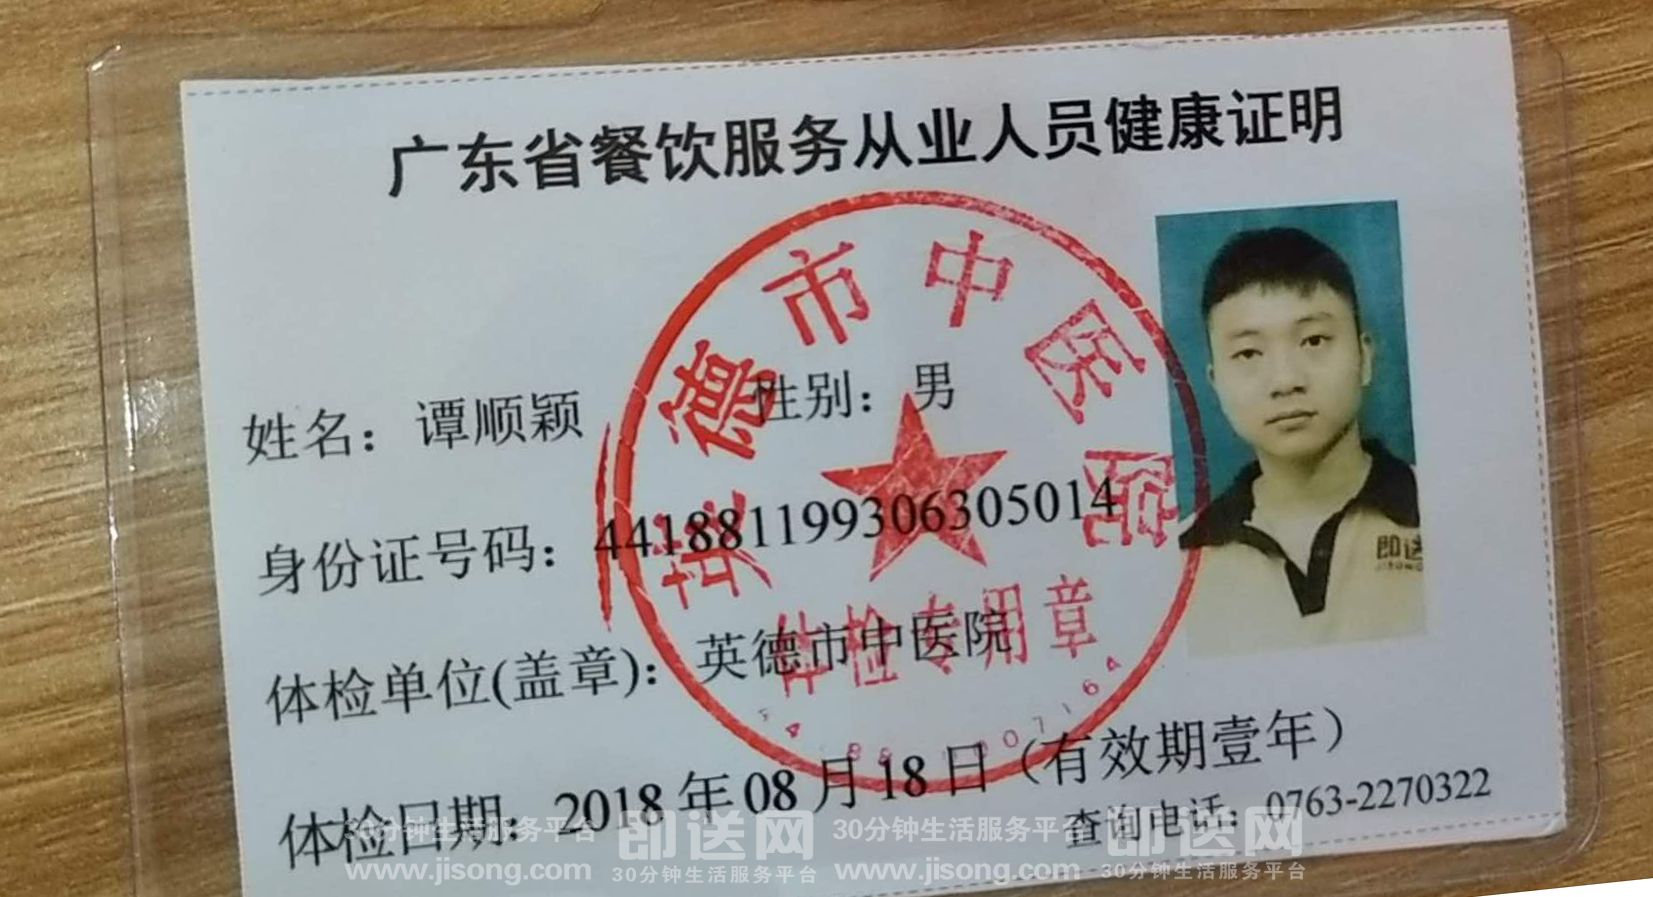 广东省餐饮服务从业人员健康证明
英德市中医院
姓名：谭顺颖 性别：男
身份证号码：441881199306305014
体检单位(盖章)：英德市中医院
体检专用章
即送
JISONG
体检日期：2018年08月18日（有效期壹年）
查询电话：0763-2270322
30分钟生活服务平台 即送网 30分钟生活服务平台 即送网
www.jisong.com 30分钟生活服务平台 www.jisong.com 30分钟生活服务平台